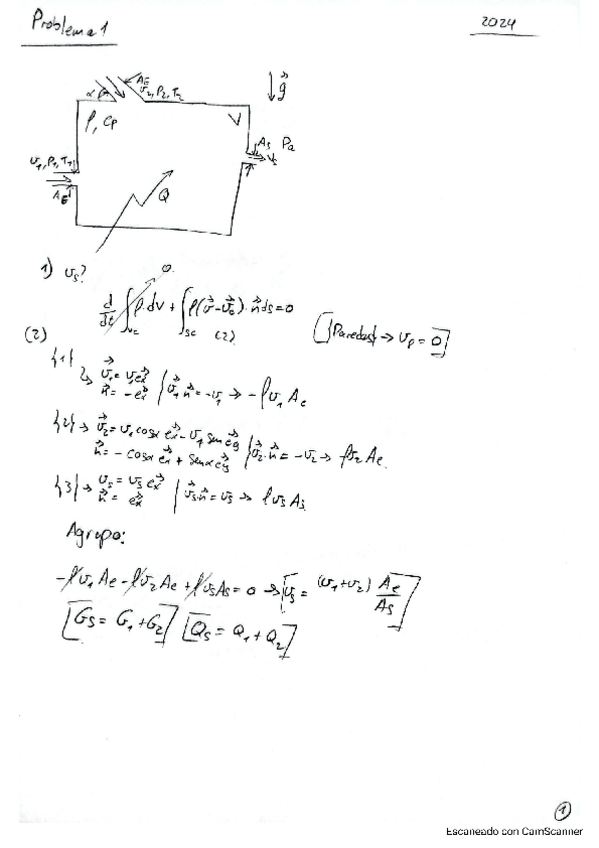 Problema 1
2024
α
AE
v₂, P₂, T₂
g⃗
ρ, cp
V
As Pa
vs
v₁, P₁, T₁
AE
Q
1) vs?
0
d/dt ∫vc ρ·dV + ∫sc ρ(v⃗ - v⃗c)·n⃗ ds = 0
(2)
(2)
[{Paredes} → vp = 0]
{1} → v⃗₁ = v₁ex⃗
n⃗ = -ex⃗ / v⃗₁·n⃗ = -v₁ → -ρv₁Ae
{2} → v⃗₂ = v₁cosα ex⃗ - v₁ senα ey⃗
n⃗ = -cosα ex⃗ + senα ey⃗ / v⃗₂·n⃗ = -v₂ → ρv₂Ae
{3} → vs = vs ex⃗
n⃗ = ex⃗ / v⃗s·n⃗ = vs → ρvsAs
Agrupo:
-ρv₁Ae - ρv₂Ae + ρvsAs = 0 → [vs = (v₁+v₂) Ae/As]
[Gs = G₁ + G₂] [Qs = Q₁ + Q₂]
1
Escaneado con CamScanner